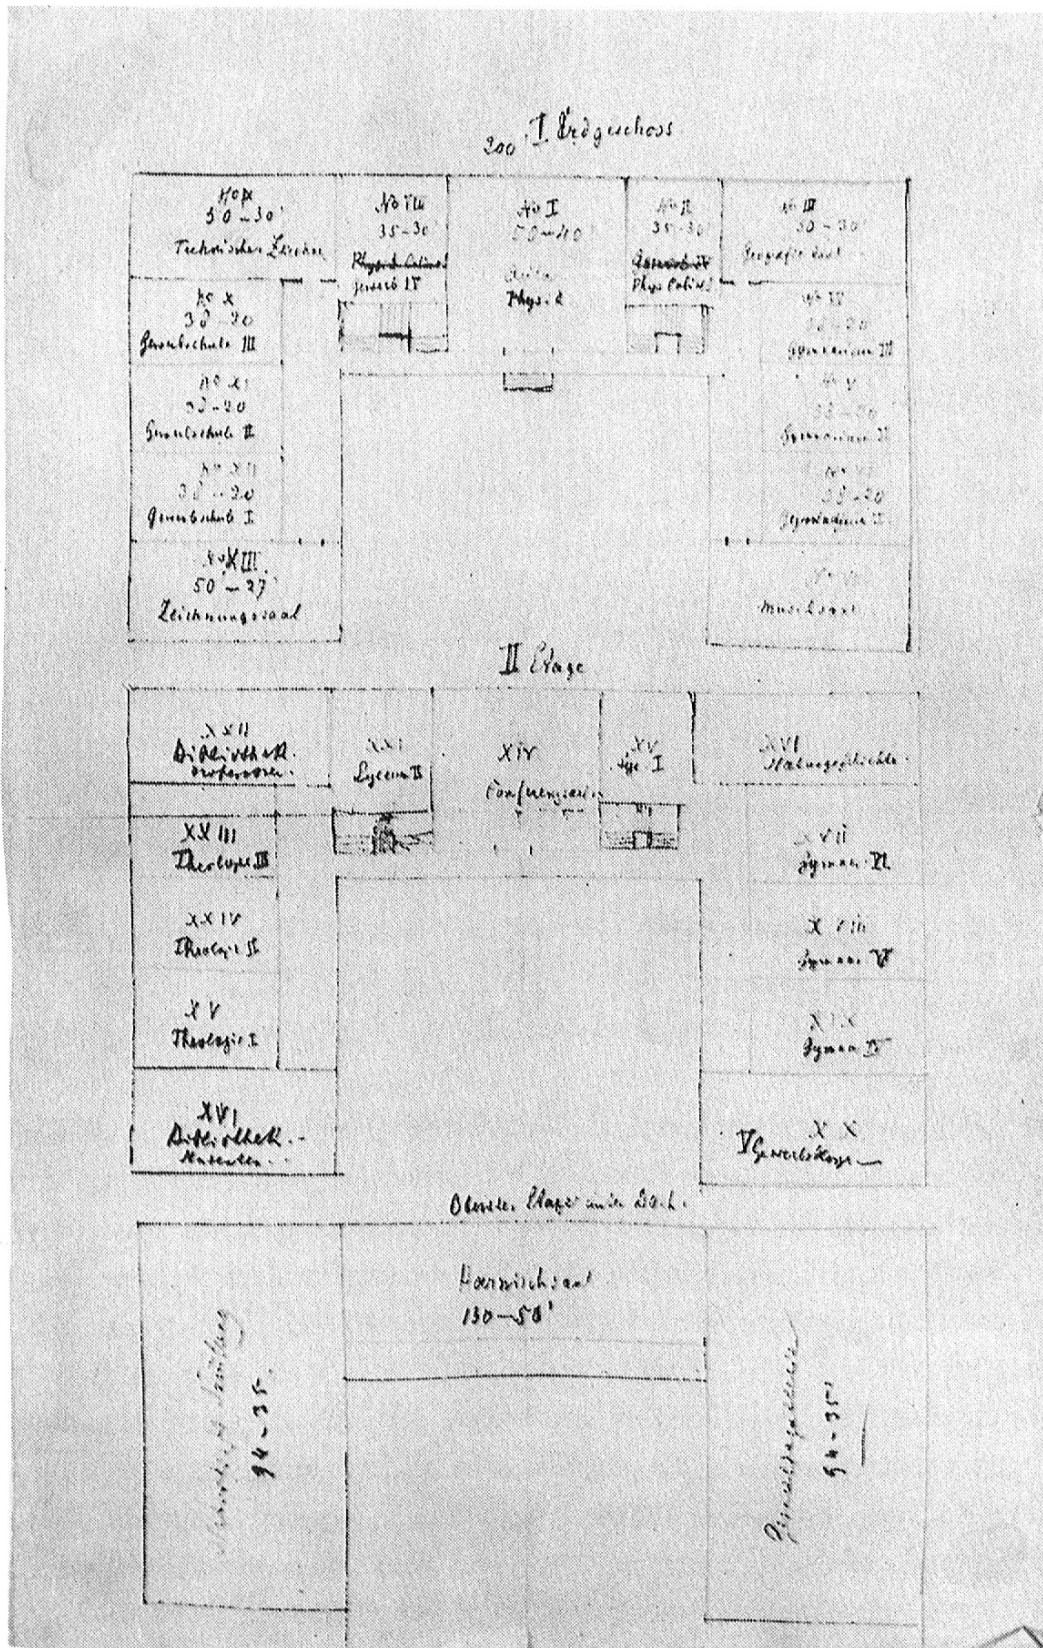 I Erdgeschoss
200
No IX
50-30'
Technischer Zeichn
No VIII
35-30'
Gewerb IV
No I
50-40'
Physik
No II
35-30'
Phys Cabinet
No III
50-30'
No X
38-20
Gewerbschule III
No XI
38-20
Gewerbschule II
No XII
38-20
Gewerbschule I
No XIII
50'-27'
Zeichnungssaal
No IV
38-20
Gymnasium III
No V
38-20
Gymnasium II
No VI
38-20
Gymnasium I
No VII
Musiksaal
II Etage
XXII
Bibliothek
Professoren
XXI
Lyceum II
XIV
Conferenzsaal
XV
Lyc I
XVI
Naturgeschichte
XXIII
Theologie III
XXIV
Theologie II
XV
Theologie I
XVI
Bibliothek
Studenten
XVII
Gymnas VI
XVIII
Gymnas V
XIX
Gymnas IV
XX
V Gewerbsklasse
Oberster Etage unter Dach
Harnischsaal
130-50'
94-35
Gemäldegallerie
94-35'